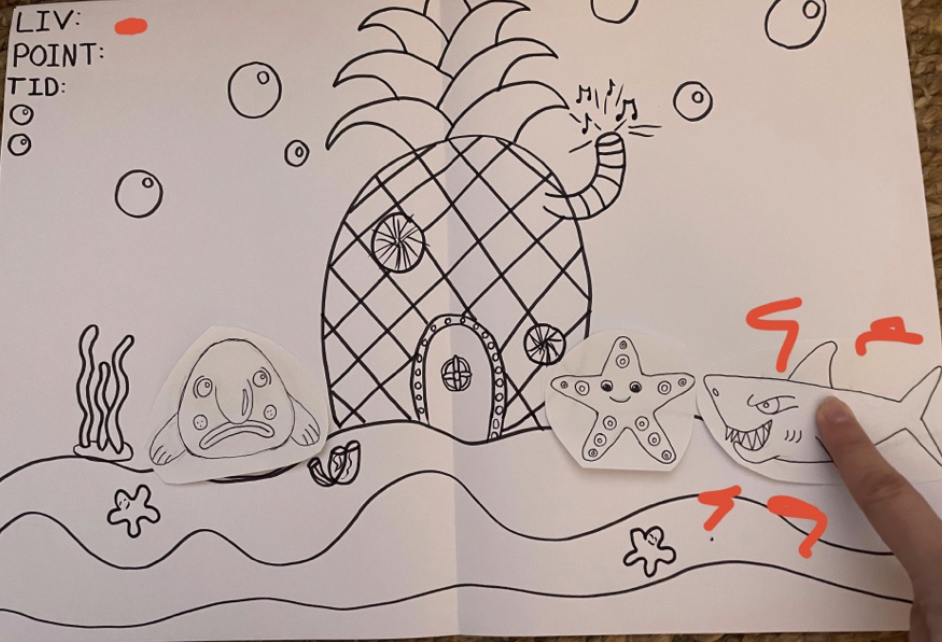 LIV:
POINT:
TID: